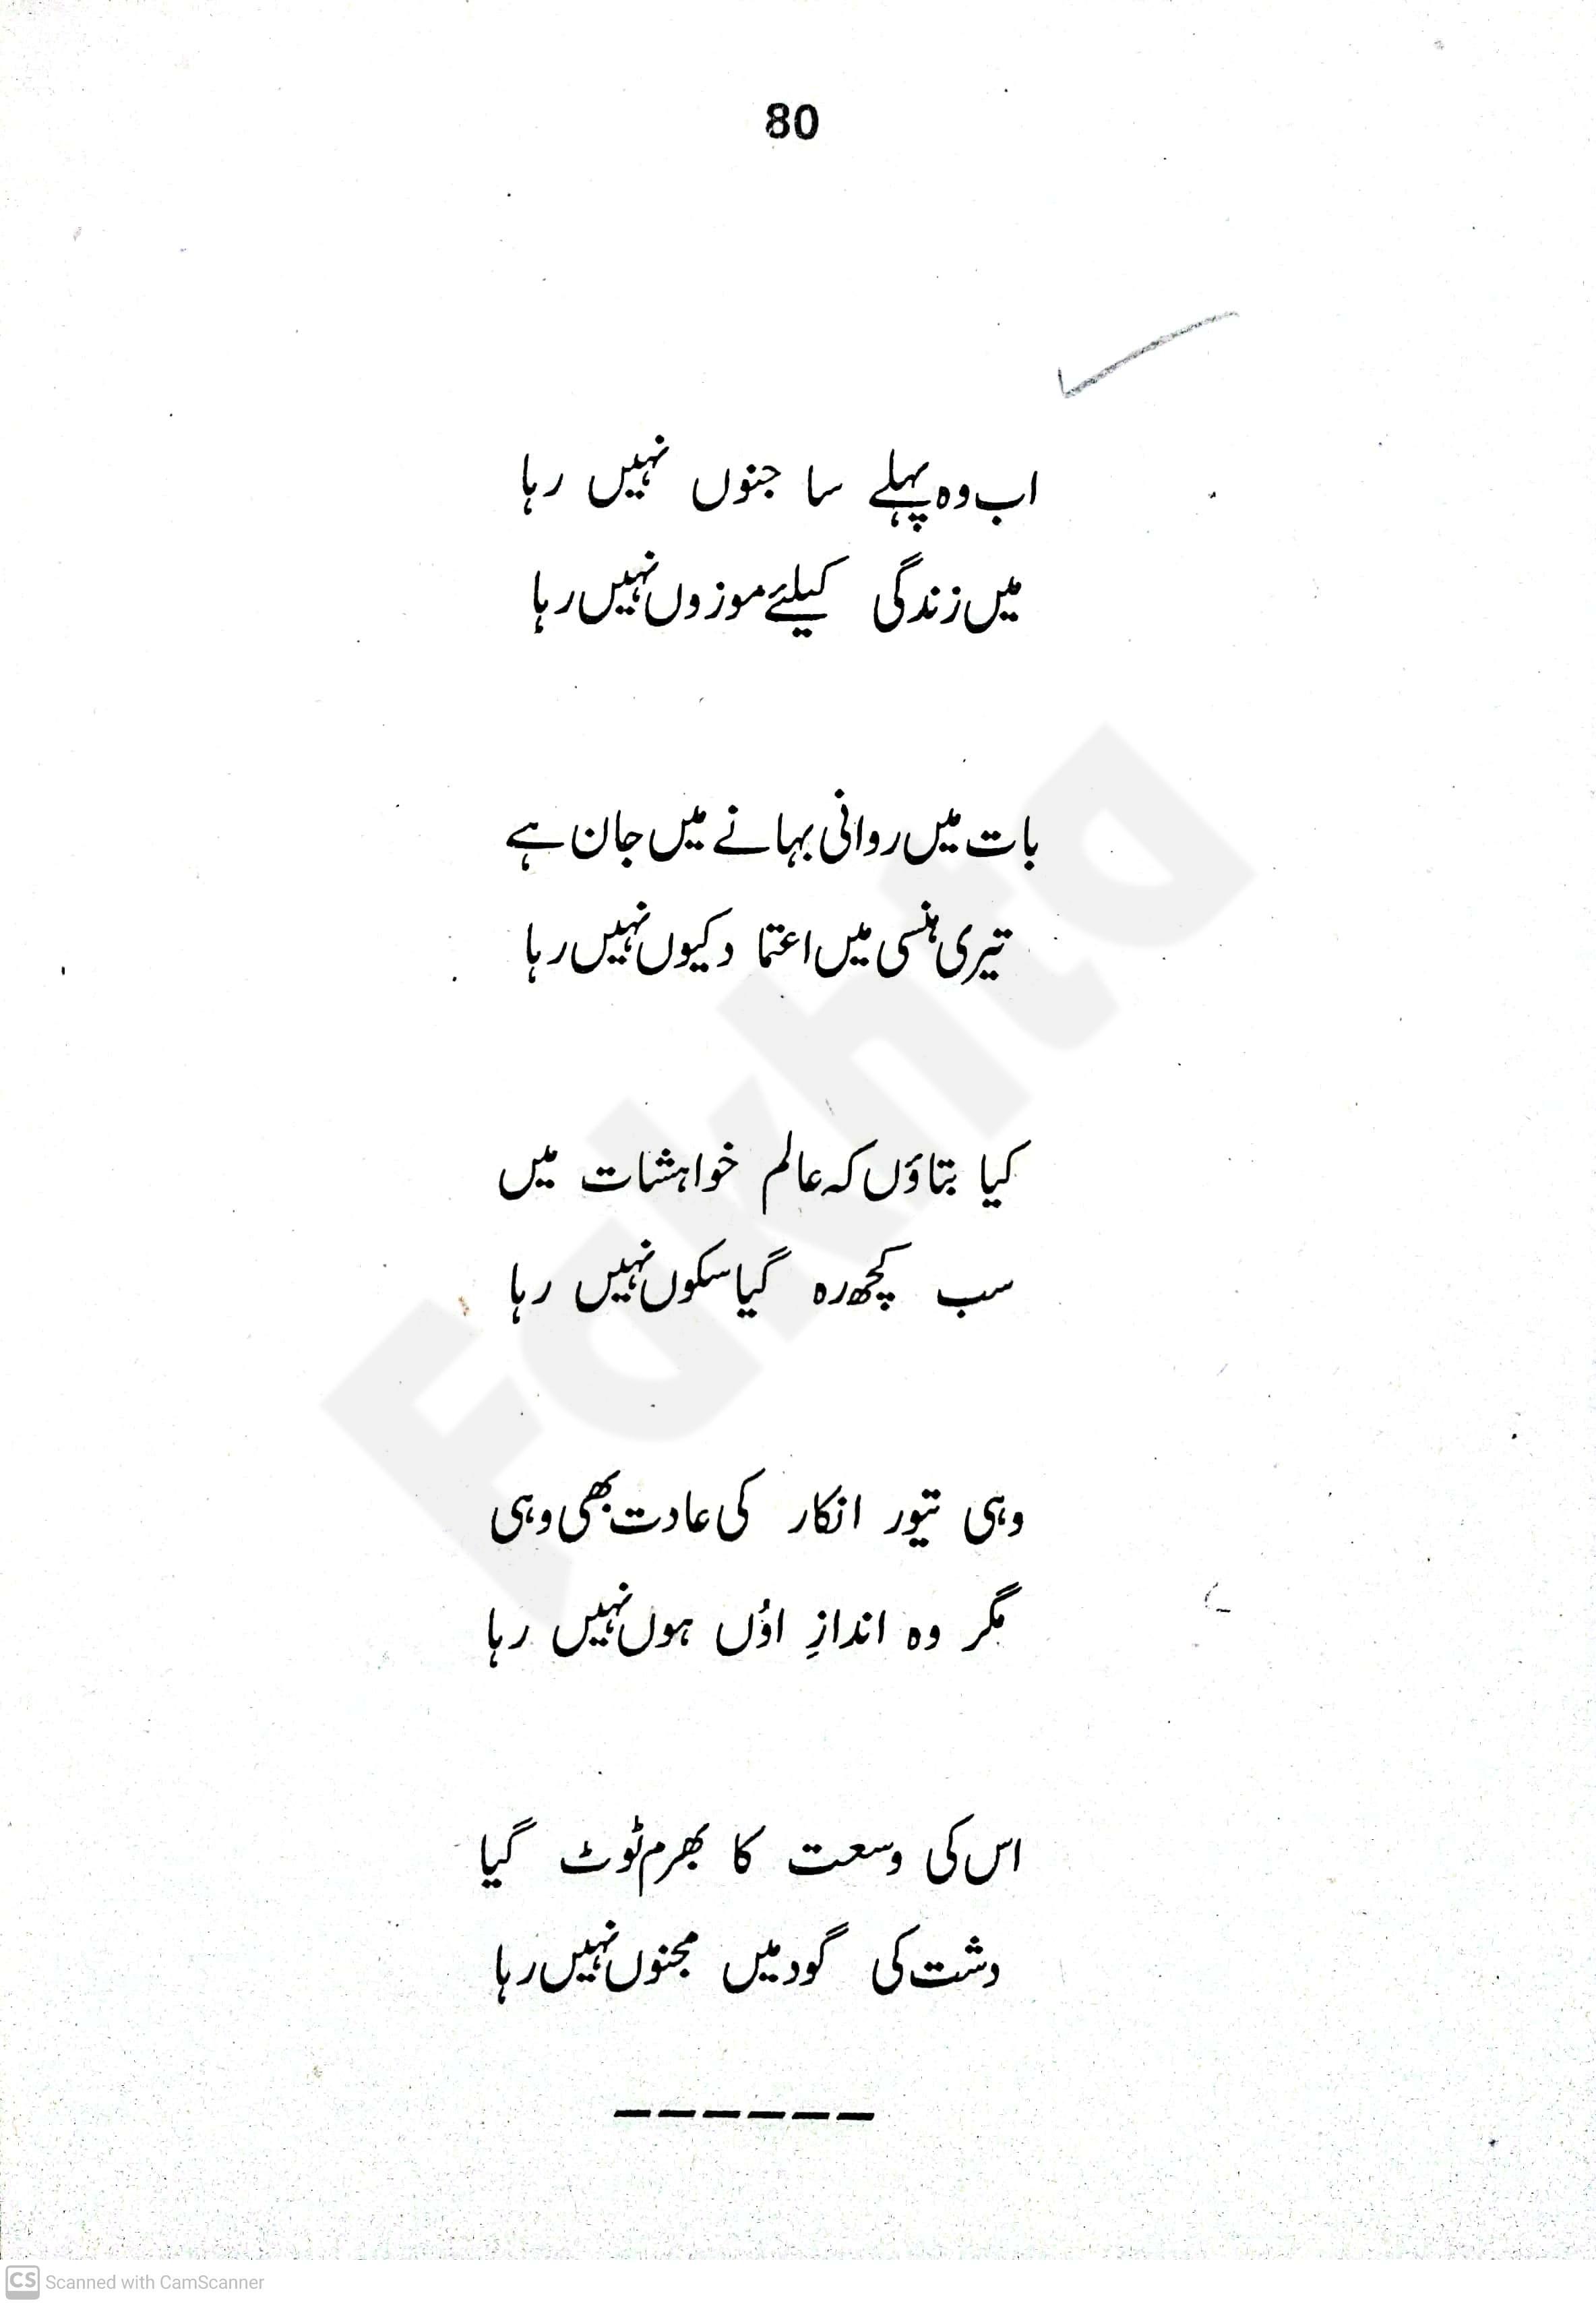 80
اب وہ پہلے سا جنوں نہیں رہا
میں زندگی کیلئے موزوں نہیں رہا
بات میں روانی بہانے میں جان ہے
تیری ہنسی میں اعتماد کیوں نہیں رہا
کیا بتاؤں کہ عالم خواہشات میں
سب کچھ رہ گیا سکوں نہیں رہا
وہی تیور انکار کی عادت بھی وہی
مگر وہ اندازِ اوُں ہوں نہیں رہا
اس کی وسعت کا بھرم ٹوٹ گیا
دشت کی گود میں مجنوں نہیں رہا
Fakhta
CS Scanned with CamScanner